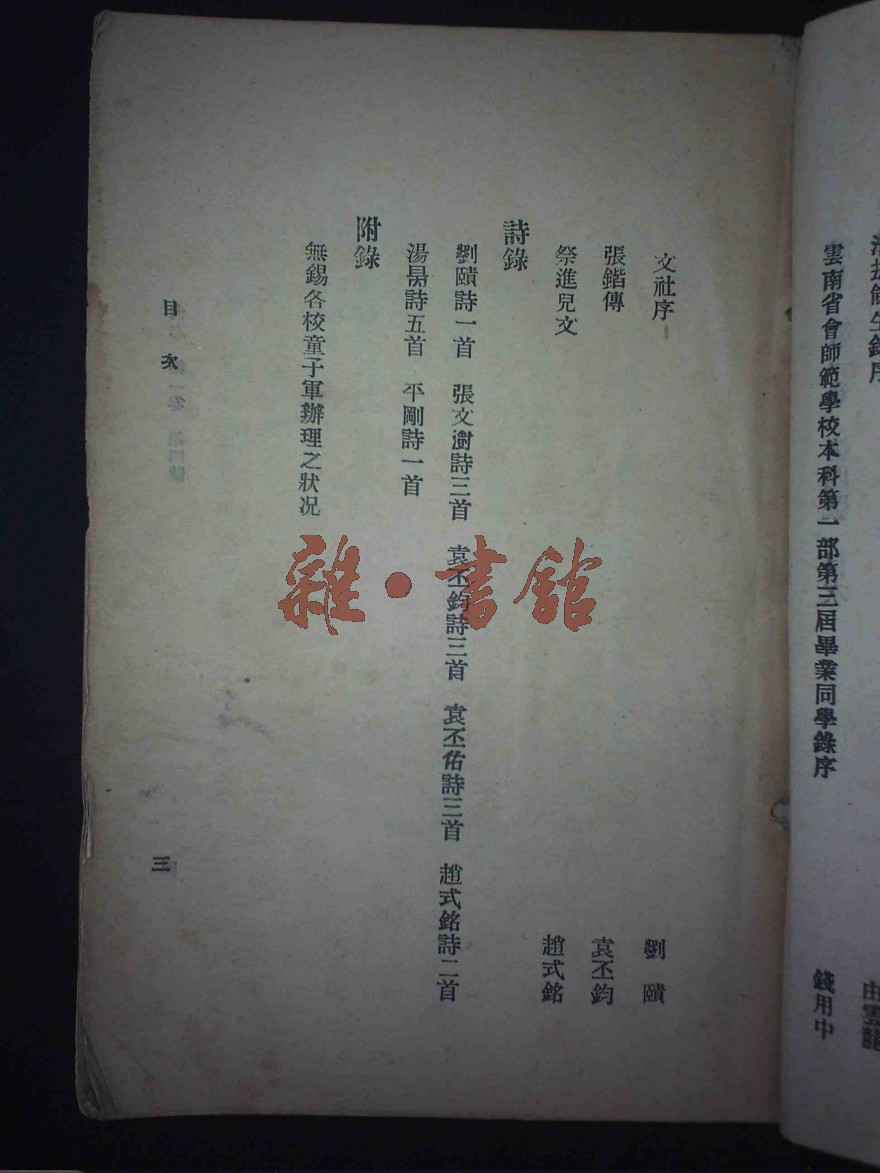 錄序
由雲龍
雲南省會師範學校本科第一部第三屆畢業同學錄序
錢用中
文社序
劉賾
張鍇傳
袁丕鈞
祭進兒文
趙式銘
詩錄
劉賾詩一首 張文澍詩三首 袁丕鈞詩三首 袁丕佑詩三首 趙式銘詩二首
湯㬎詩五首 平剛詩一首
附錄
無錫各校童子軍辦理之狀況
目次
三
雜・書館